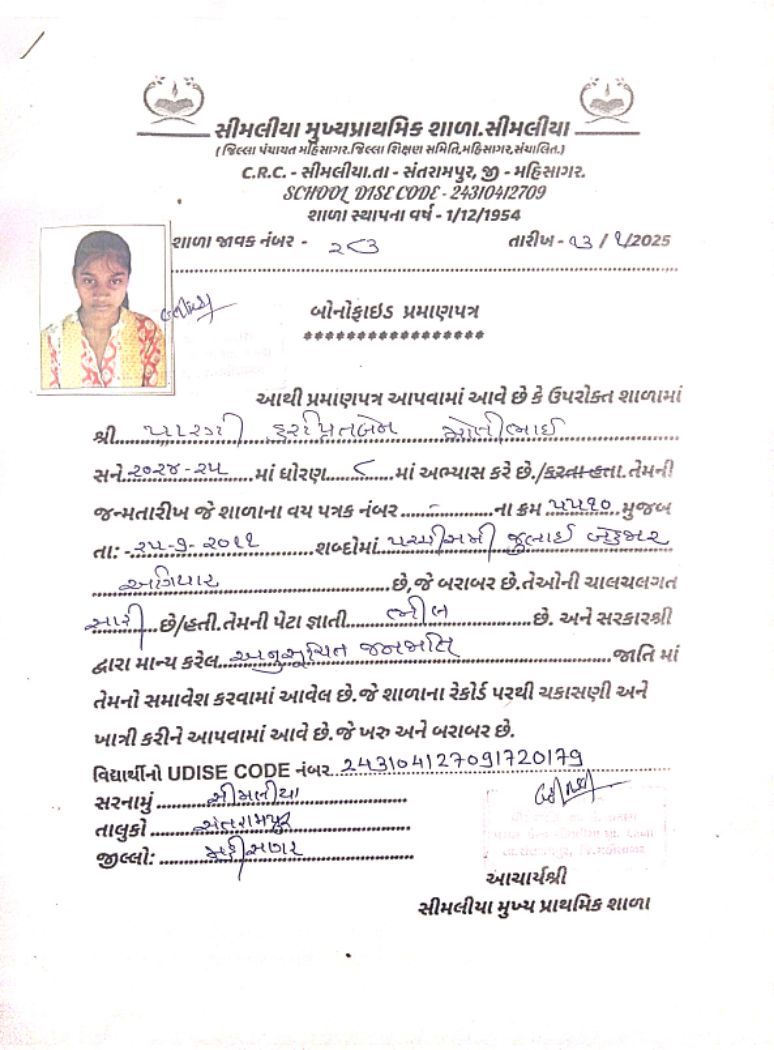 સીમલીયા મુખ્યપ્રાથમિક શાળા.સીમલીયા
( જિલ્લા પંચાયત મહિસાગર.જિલ્લા શિક્ષણ સમિતિ,મહિસાગર,સંચાલિત.)
C.R.C. - સીમલીયા.તા - સંતરામપુર, જી - મહિસાગર.
SCHOOL DISE CODE - 24310412709
શાળા સ્થાપના વર્ષ - 1/12/1954
શાળા જાવક નંબર - ૨૮૩ તારીખ - ૧૩ / ૧/2025
બોનોફાઇડ પ્રમાણપત્ર
*****************
આથી પ્રમાણપત્ર આપવામાં આવે છે કે ઉપરોક્ત શાળામાં
શ્રી પારગી મોતીભાઈ
સને ૨૦૨૪-૨૫ માં ધોરણ ૮ માં અભ્યાસ કરે છે./કરતા હતા. તેમની
જન્મતારીખ જે શાળાના વય પત્રક નંબર - ના ક્રમ ૫૫૧૦ મુજબ
તા: - ૨૫-૭-૨૦૧૧ શબ્દોમાં પચ્ચીસમી જુલાઈ બેહજાર
અગિયાર છે,જે બરાબર છે.તેઓની ચાલચલગત
સારી છે/હતી.તેમની પેટા જ્ઞાતી ભીલ છે. અને સરકારશ્રી
દ્વારા માન્ય કરેલ અનુસૂચિત જનજાતિ જાતિ માં
તેમનો સમાવેશ કરવામાં આવેલ છે.જે શાળાના રેકોર્ડ પરથી ચકાસણી અને
ખાત્રી કરીને આપવામાં આવે છે.જે ખરુ અને બરાબર છે.
વિદ્યાર્થીનો UDISE CODE નંબર 243104127091720179
સરનામું સીમલીયા
તાલુકો સંતરામપુર
જીલ્લો: મહીસાગર
આચાર્યશ્રી
સીમલીયા મુખ્ય પ્રાથમિક શાળા